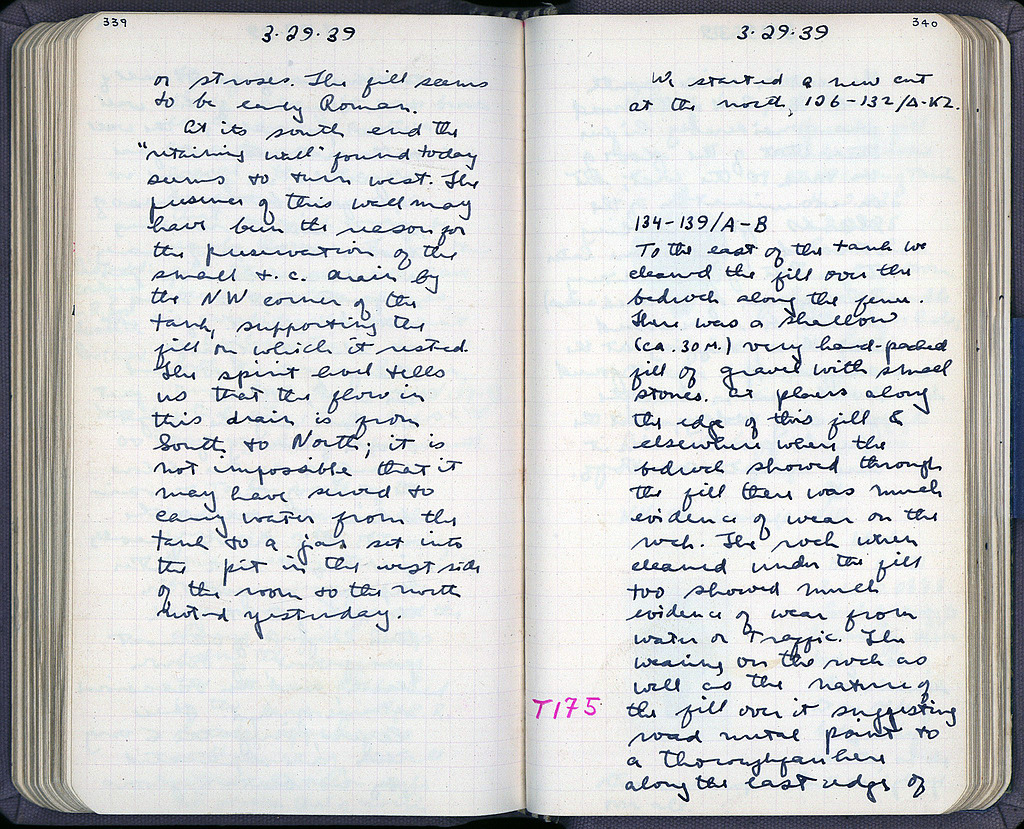 339
3·29·39
or stroses. The fill seems
to be early Roman.
At its south end the
"retaining wall" found today
seems to turn west. The
presence of this wall may
have been the reason for
the preservation of the
small t.c. drain by
the NW corner of the
tank, supporting the
fill on which it rested.
The spirit level tells
us that the flow in
this drain is from
South to North; it is
not impossible that it
may have served to
carry water from the
tank to a jar set into
the pit in the west side
of the room to the north
not-d yesterday.
340
3·29·39
We started a new cut
at the north, 126-132/A-KZ.
134-139/A-B
To the east of the tank we
cleaned the fill over the
bedrock along the fence.
There was a shallow
(ca. 30 M.) very hard-packed
fill of gravel with small
stones. At places along
the edge of this fill &
elsewhere where the
bedrock showed through
the fill there was much
evidence of wear on the
rock. The rock when
cleaned under the fill
too showed much
evidence of wear from
water or traffic. The
wearing on the rock as
well as the nature of
T175
the fill over it suggesting
road metal point to
a thoroughfare here
along the east edge of